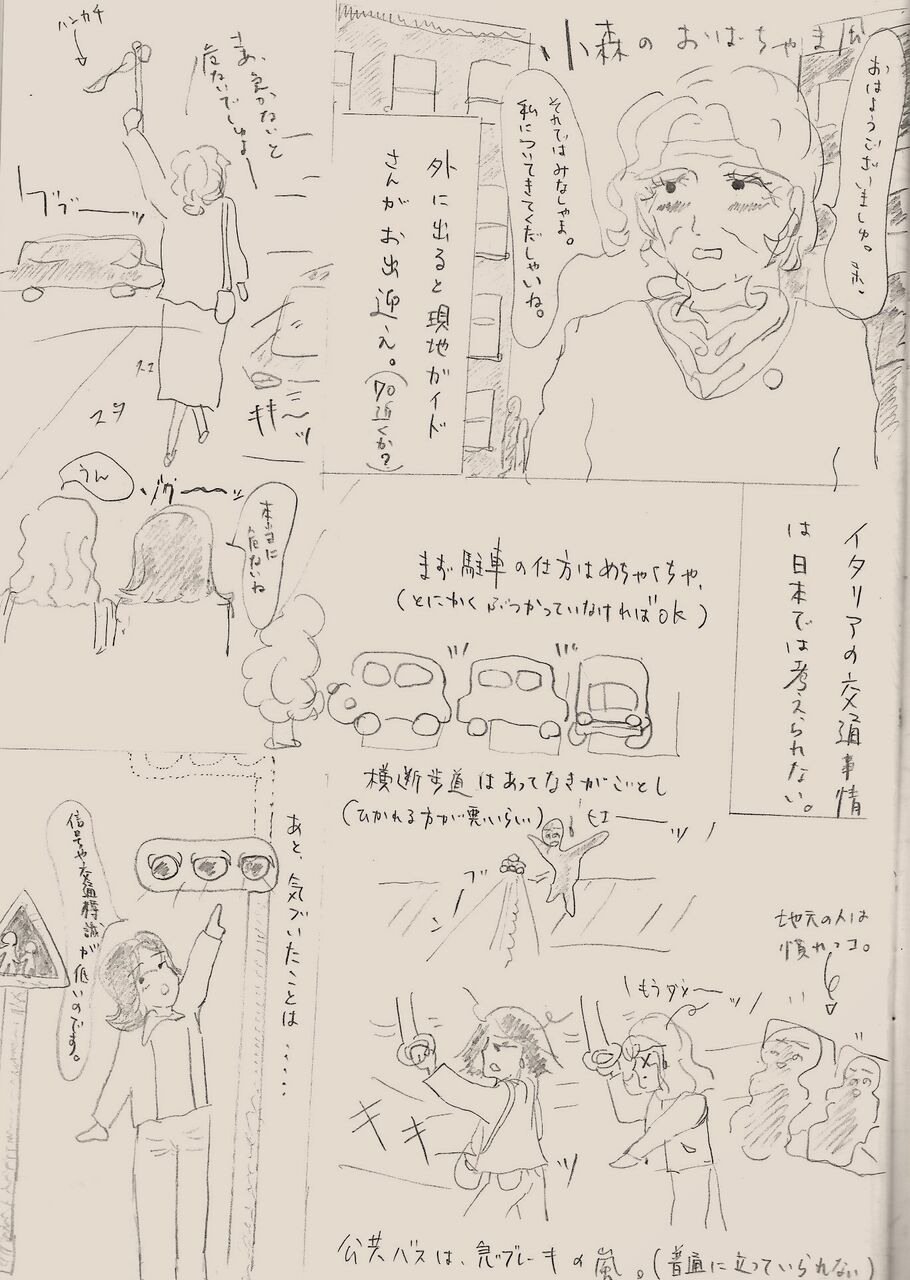 小森のおばちゃま風
おはようございましゅ。ホ、
それではみなしゃま。
私についてきてくだしゃいね。
外に出ると現地ガイド
さんがお出迎え。
(70近くか?)
ハンカチ
まあ急がないと
危ないでしゅよー
ブブーーッ
スタ
スタ
キキ〜ッ
うん
本当に
危ないね
イタリアの交通事情
は日本では考えられない。
まず駐車の仕方はめちゃくちゃ、
(とにかくぶつかっていなければOK)
横断歩道はあってなきがごとし
(ひかれる方が悪いらしい)
ヒェーーッ
ブーン
地元の人は
慣れっコ。
もうダメ〜ッ
キキーッ
公共バスは、急ブレーキの嵐。(普通に立っていられない)
あと、気づいたことは・・・・・
信号や交通標識が低いのです。